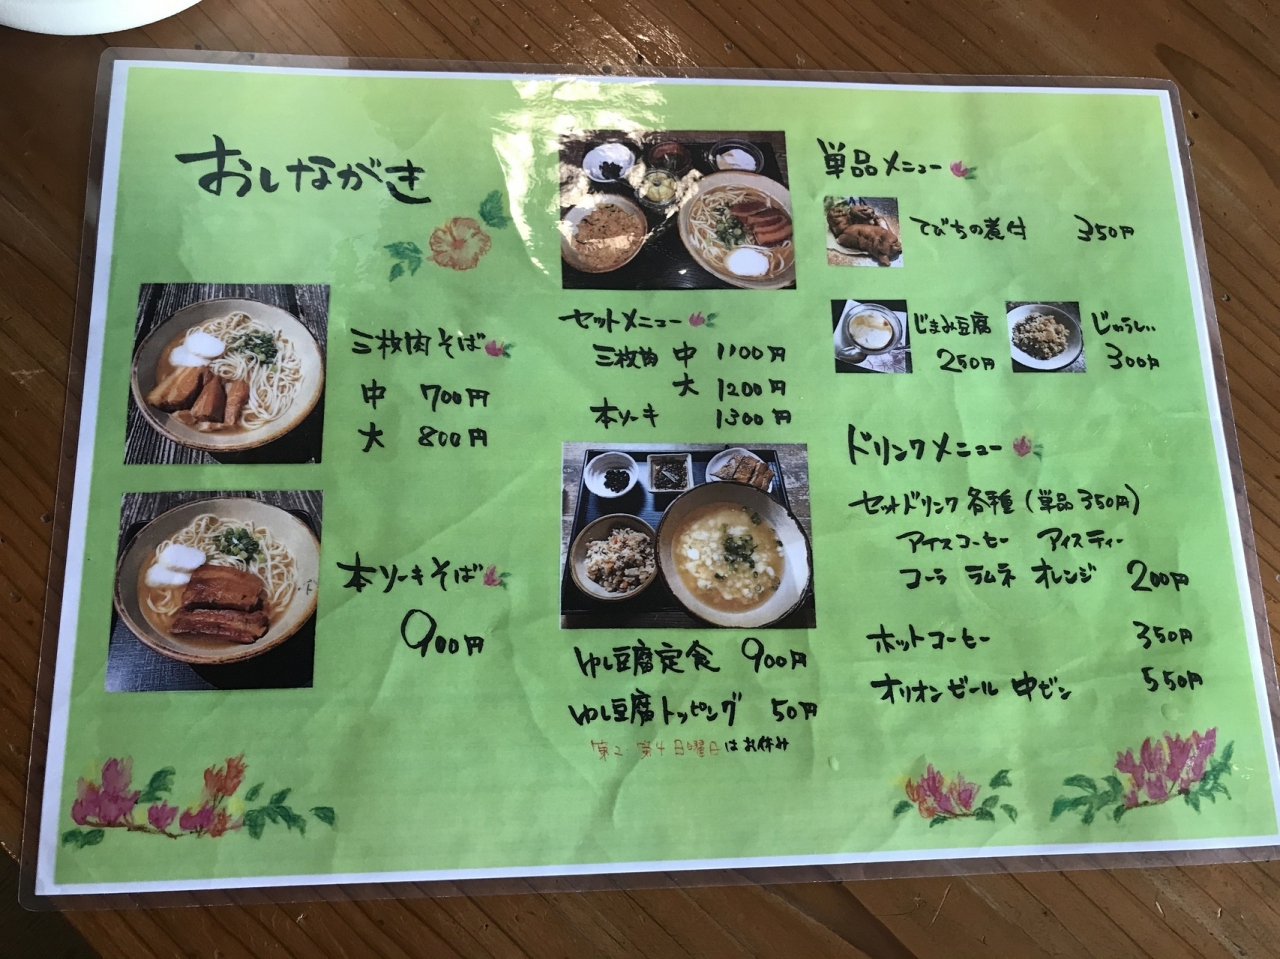 おしながき
三枚肉そば
中 700円
大 800円
本ソーキそば
900円
セットメニュー
三枚肉 中 1100円
大 1200円
本ソーキ 1300円
ゆし豆腐定食 900円
ゆし豆腐トッピング 50円
第2・第4日曜日はお休み
単品メニュー
てびちの煮付 350円
じまみ豆腐
250円
じゅうしぃ
300円
ドリンクメニュー
セットドリンク各種(単品350円)
アイスコーヒー アイスティー
コーラ ラムネ オレンジ 200円
ホットコーヒー 350円
オリオンビール 中ビン 550円